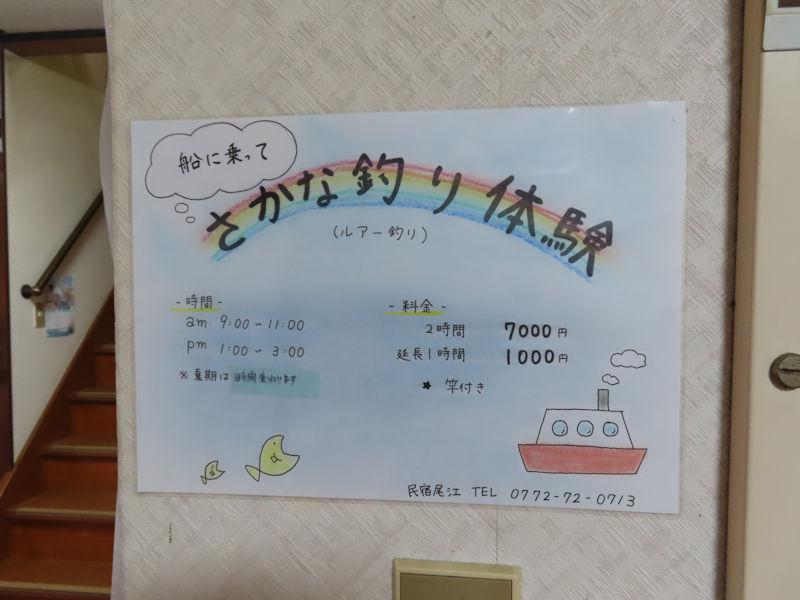 船に乗って
さかな釣り体験
(ルアー釣り)
- 時間 -
am 9:00～11:00
pm 1:00～3:00
※夏期は時間変わります
- 料金 -
2時間 7000円
延長1時間 1000円
★ 竿付き
民宿尾江 TEL 0772-72-0713